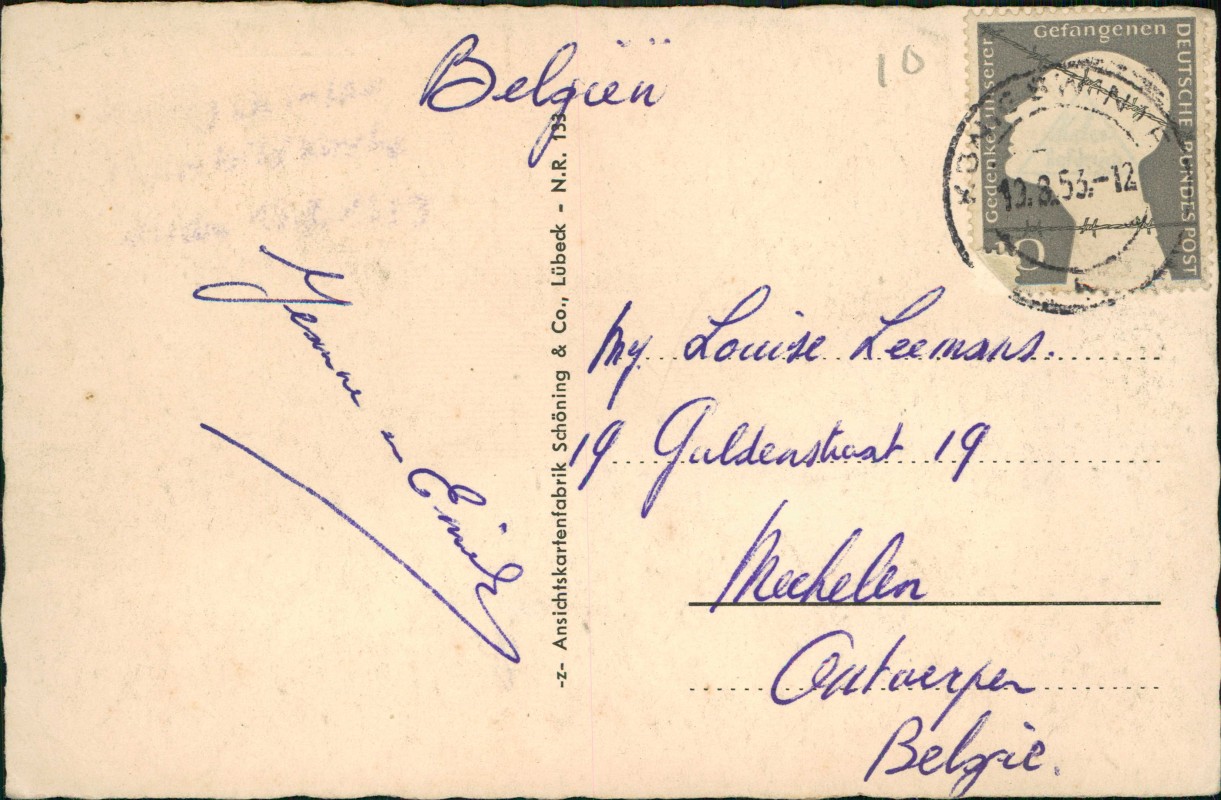 Belgien
10
Gedenket unserer
Gefangenen
DEUTSCHE BUNDESPOST
10
.8.53.-12
Jeanne en Emiel
-z- Ansichtskartenfabrik Schöning & Co., Lübeck - N.R. 133
My Louise Leemans.
19 Guldenstraat 19
Mechelen
Antwerpen
Belgie.